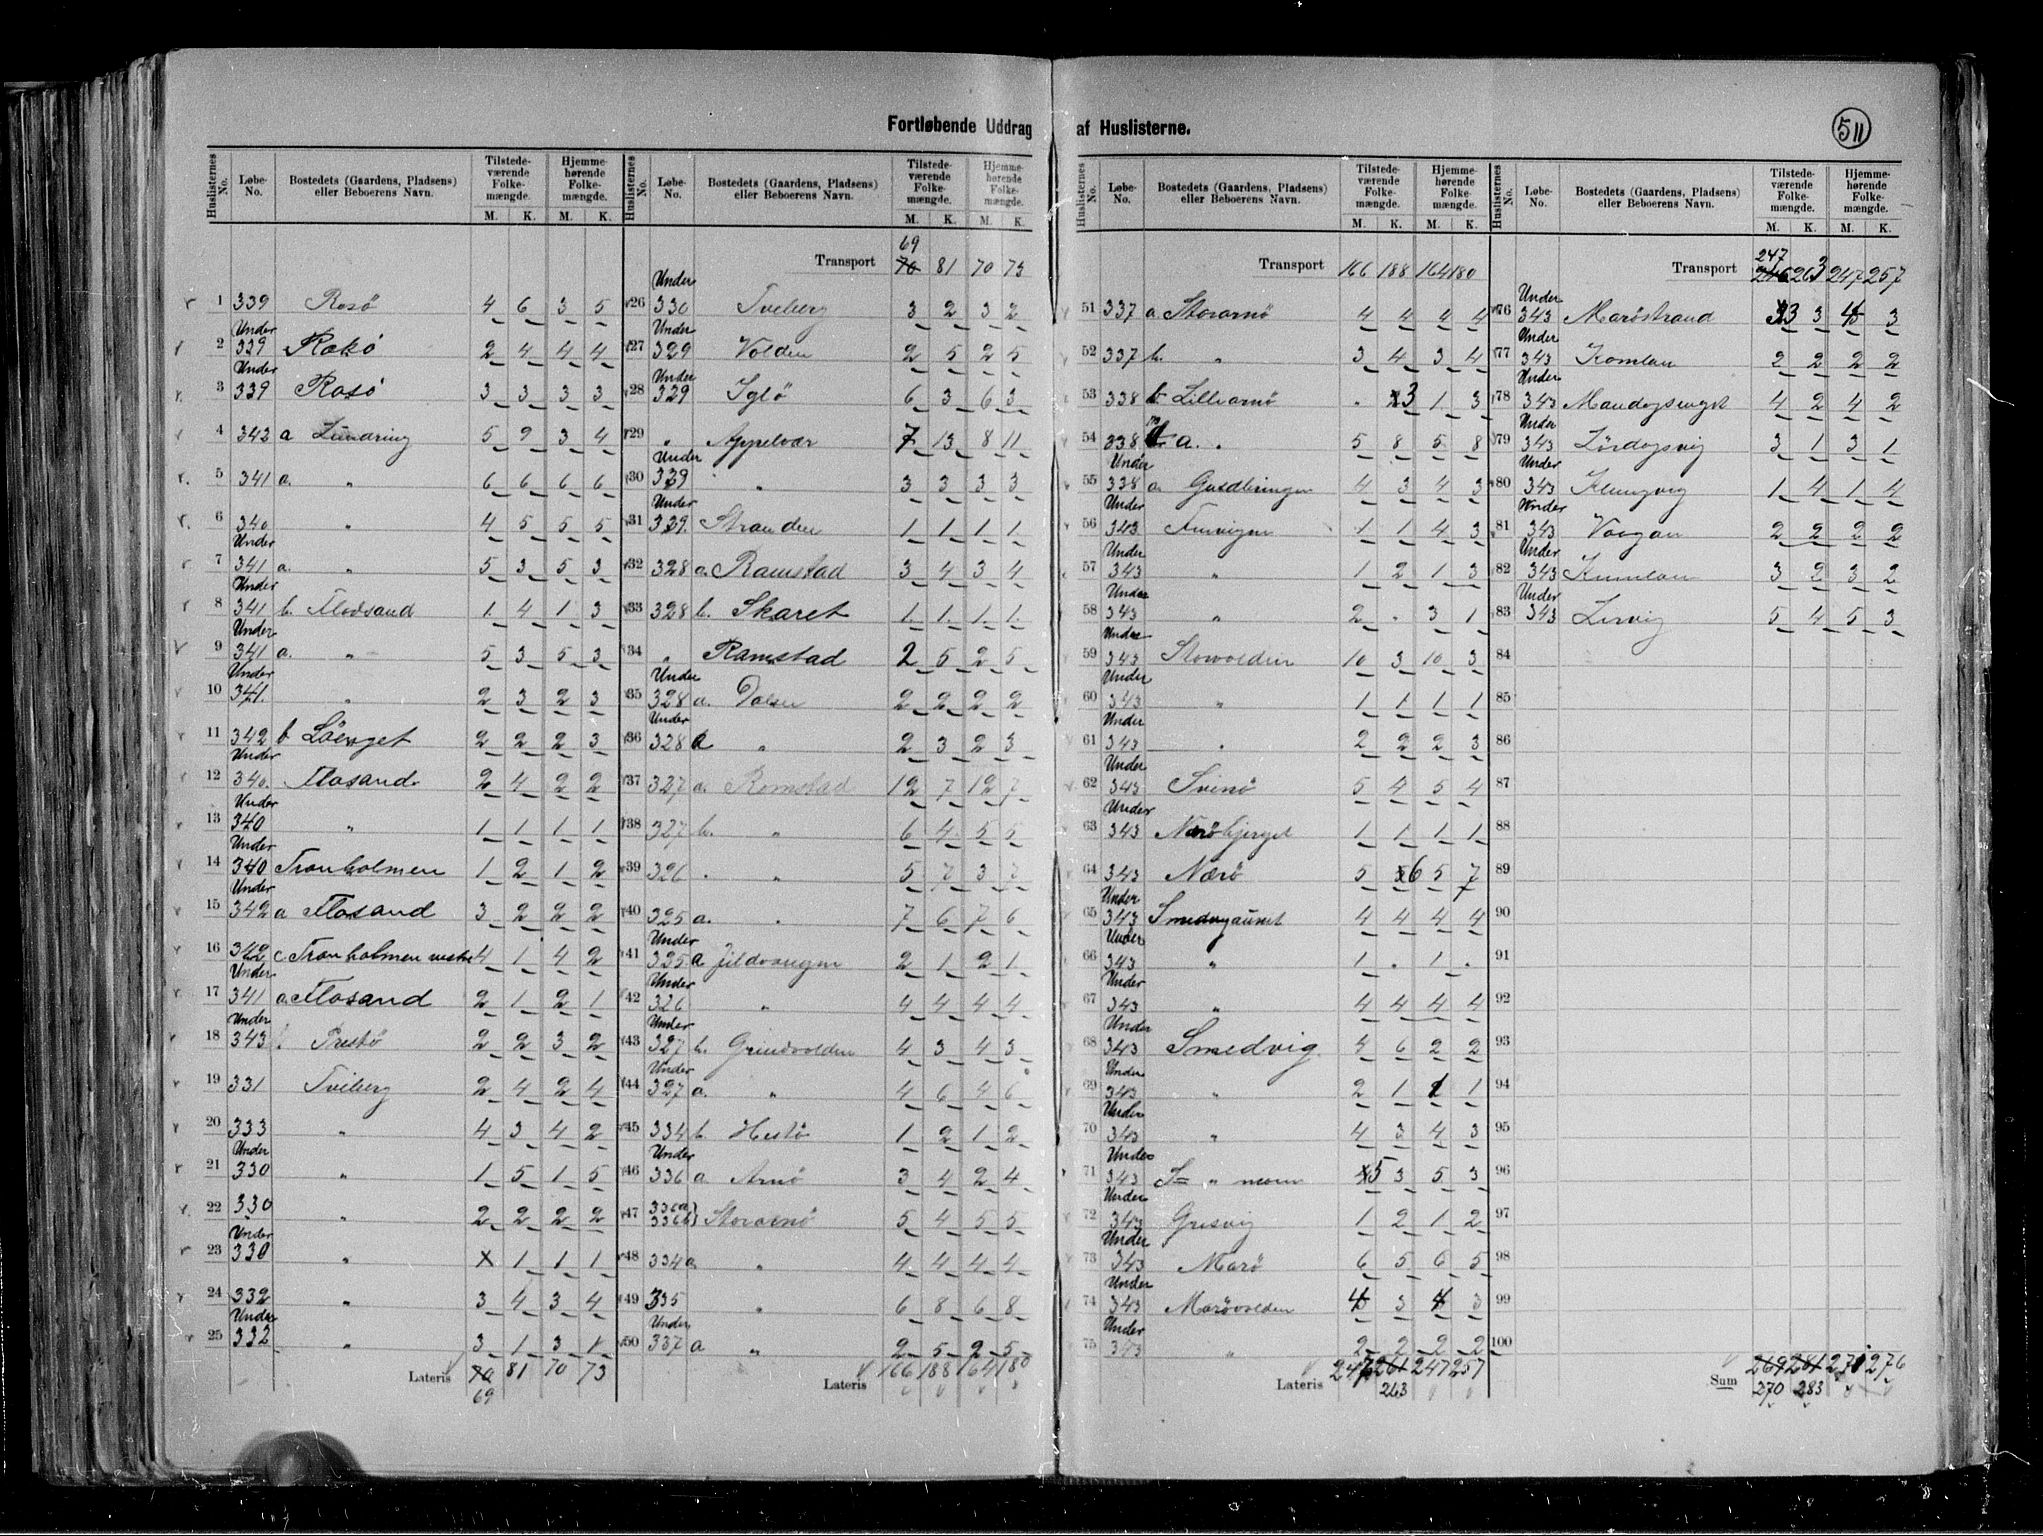 511
Fortløbende Uddrag af Huslisterne.
Huslisternes No. Løbe-No. Bostedets (Gaardens, Pladsens) eller Beboerens Navn. Tilstedeværende Folkemængde. Hjemmehørende Folkemængde.
M. K. M. K.
1 339 Rosø 4 6 3 5
2 Under 339 Rosø 2 4 4 4
3 Under 339 Rosø 3 3 3 3
4 342 a Lundring 5 9 3 4
5 341 a. " 6 6 6 6
6 340 " 4 5 5 5
7 Under 341 a. " 5 3 5 3
8 Under 341 b. Flodsand 1 4 1 3
9 Under 341 a. " 5 3 5 3
10 Under 341. " 2 3 2 3
11 342 b 2 2 2 3
12 Under 340. Flosand 2 4 2 2
13 Under 340 " 1 1 1 1
14 Under 340 Tranholmen 1 2 1 2
15 Under 342 a Flosand 3 2 2 2
16 342 c. Tranholmen vestre 4 1 4 2
17 Under 341 a. Flosand 2 1 2 1
18 Under 343 Prestø 2 2 3 2
19 331 Tviberg 2 4 2 4
20 333 " 4 3 4 2
21 Under 330 " 1 5 1 5
22 330 " 2 2 2 2
23 Under 330 " x 1 1 1
24 332 " 3 4 3 4
25 Under 332 " 3 1 3 1
Lateris 70 81 70 73
69
69
Transport 70 81 70 73
26 Under 330 Tviberg 3 2 3 2
27 Under 329 Volden 2 5 2 5
28 Under 329 Iglø 6 3 6 3
29 " Appelvær 7 13 8 11
30 Under 329 " 3 3 3 3
31 Under 329. Stranden 1 1 1 1
32 328 a. Ramstad 3 4 3 4
33 328 b. Skaret 1. 1. 1. 1.
34 " Ramstad 2 5 2 5
35 Under 328 a. Dalen 2 2 2 2
36 Under 328 a " 2 3 2 3
37 327 a. Romstad 12 7 12 7
38 327 b. " 6 4 5 5
39 326 " 5 7 3 7
40 325 a. " 7 6 7 6
41 Under 325 a Jildvangen 2 1 2 1
42 Under 326 " 4 4 4 4
43 Under 327 b. Grindvolden 4 3 4 3
44 Under 327 a. " 4 6 4 6
45 334 b. Hestø 1 2 1 2
46 Under 336 a Arnø 3 4 2 4
47 336a 336b } Storarnø 5 4 5 5
48 334 a. " 4 4 4 4
49 335 " 6 8 6 8
50 Under 337 a " 2 5 2 5
Lateris 166 188 164 180
Transport 166 188 164 180
51 337 a. Storarnø 4 4 4 4
52 337 b. " 3 4 3 4
53 338 b Lillearnø . 3 1 3
54 338 a. " 5 8 5 8
55 Under 338 a. Guldbringen 4 3 4 3
56 Under 343 Finvigen 1 1 4 3
57 Under 343 " 1 2 1 3
58 Under 343 " 2 . 3 1
59 Under 343 Storvolden 10 3 10 3
60 Under 343 " 1 1 1 1
61 Under 343 " 2 2 2 3
62 Under 343 Svinø 5 4 5 4
63 Under 343 Nærøbjerget 1 1 1 1
64 343 Nærø 5 6 5 7
65 Under 343 4 4 4 4
66 Under 343 " 1 . 1 .
67 Under 343 " 4 4 4 4
68 Under 343 Smedvig 4 6 2 2
69 Under 343 " 2 1 1 1
70 Under 343 " 4 3 4 3
71 Under 343 5 3 5 3
72 Under 343 Grisvig 1 2 1 2
73 Under 343 Marø 6 5 6 5
74 Under 343 Marøvolden 4 3 4 3
75 Under 343 " 2 2 2 2
Lateris 247 261 247 257
263
247
Transport 246 263 247 257
76 Under 343 Marøstrand 3 3 4 3
77 Under 343 Komlan 2 2 2 2
78 Under 343 4 2 4 2
79 Under 343 Lördagsvig 3 1 3 1
80 Under 343 Klungvig 1 4 1 4
81 Under 343 Vaagan 2 2 2 2
82 Under 343 Kumlan 3 2 3 2
83 Under 343 Lervig 5 4 5 3
84
85
86
87
88
89
90
91
92
93
94
95
96
97
98
99
100
Sum 269 281 271 276
270 283